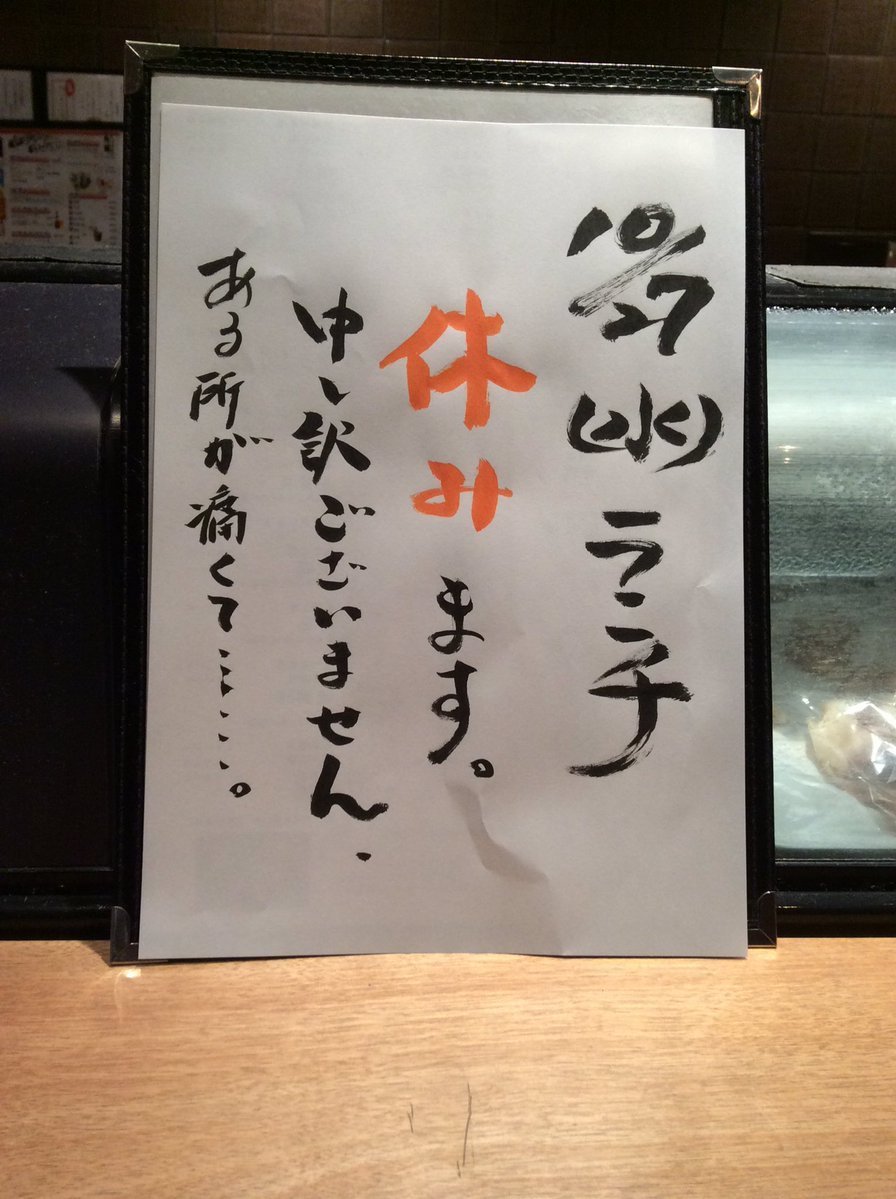 10/27(水)ランチ
休みます。
申し訳ございません.
ある所が痛くて……。